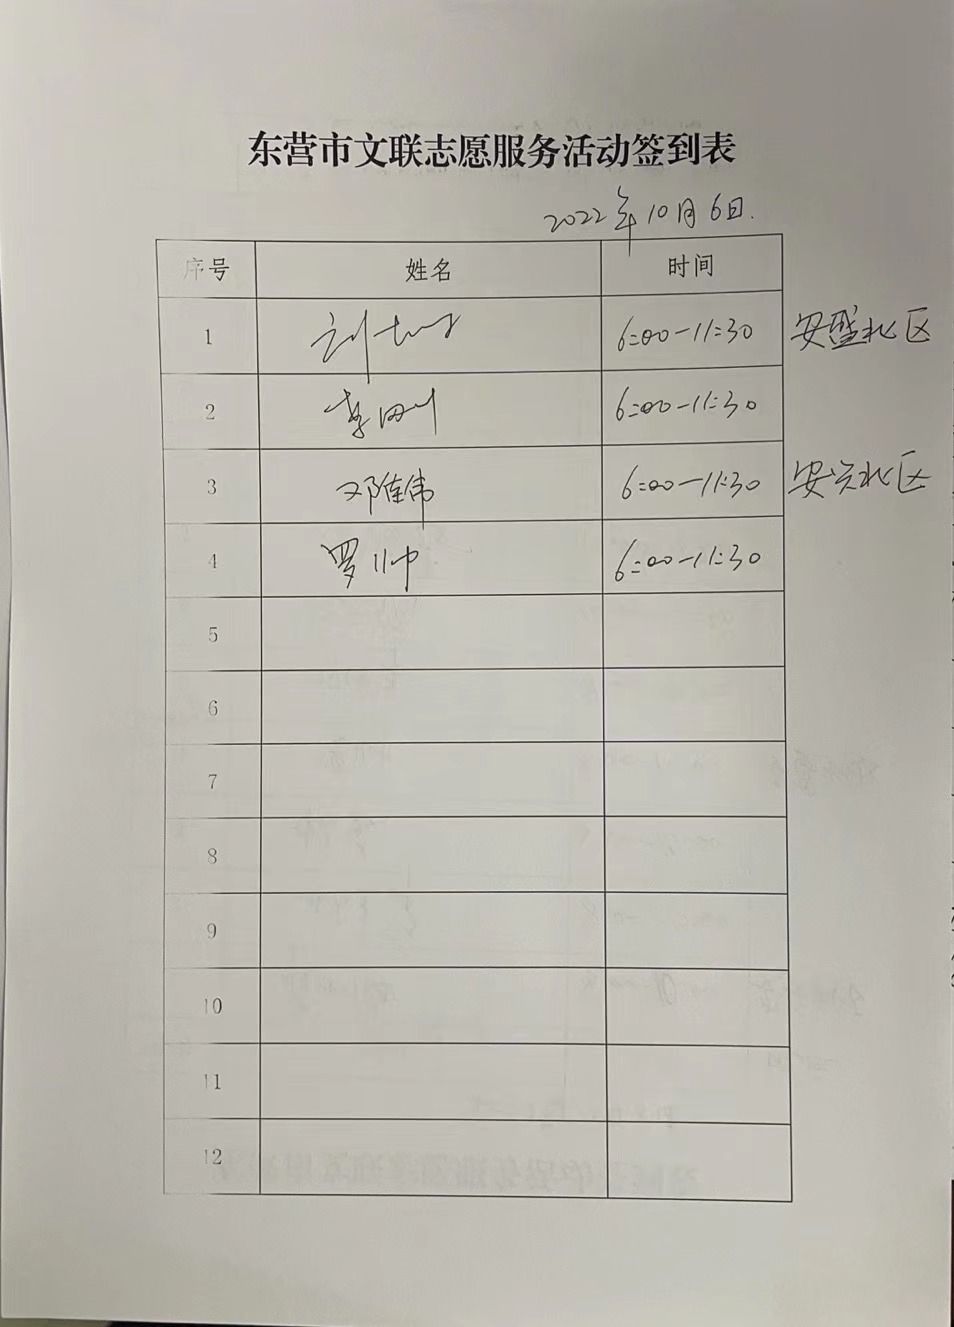 东营市文联志愿服务活动签到表
2022年10月6日.
序号 姓名 时间
1 刘 6:00-11:30 安盛北区
2 李刚 6:00-11:30
3 邓维伟 6:00-11:30 安兴北区
4 罗帅 6:00-11:30
5
6
7
8
9
10
11
12